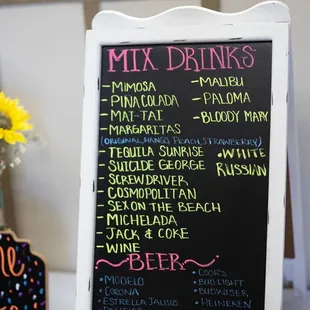 MIX DRINKS
- MIMOSA
- PINA COLADA
- MAI-TAI
- MARGARITAS
(ORIGINAL, MANGO, PEACH, STRAWBERRY)
- TEQUILA SUNRISE
- SUICIDE GEORGE
- SCREWDRIVER
- COSMOPOLITAN
- SEX ON THE BEACH
- MICHELADA
- JACK & COKE
- WINE
- MALIBU
- PALOMA
- BLOODY MARY
• WHITE
RUSSIAN
~BEER~
- MODELO
- CORONA
- ESTRELLA JALISCO
- COORS
- BUD LIGHT
- BUDWISER
- HEINEKEN